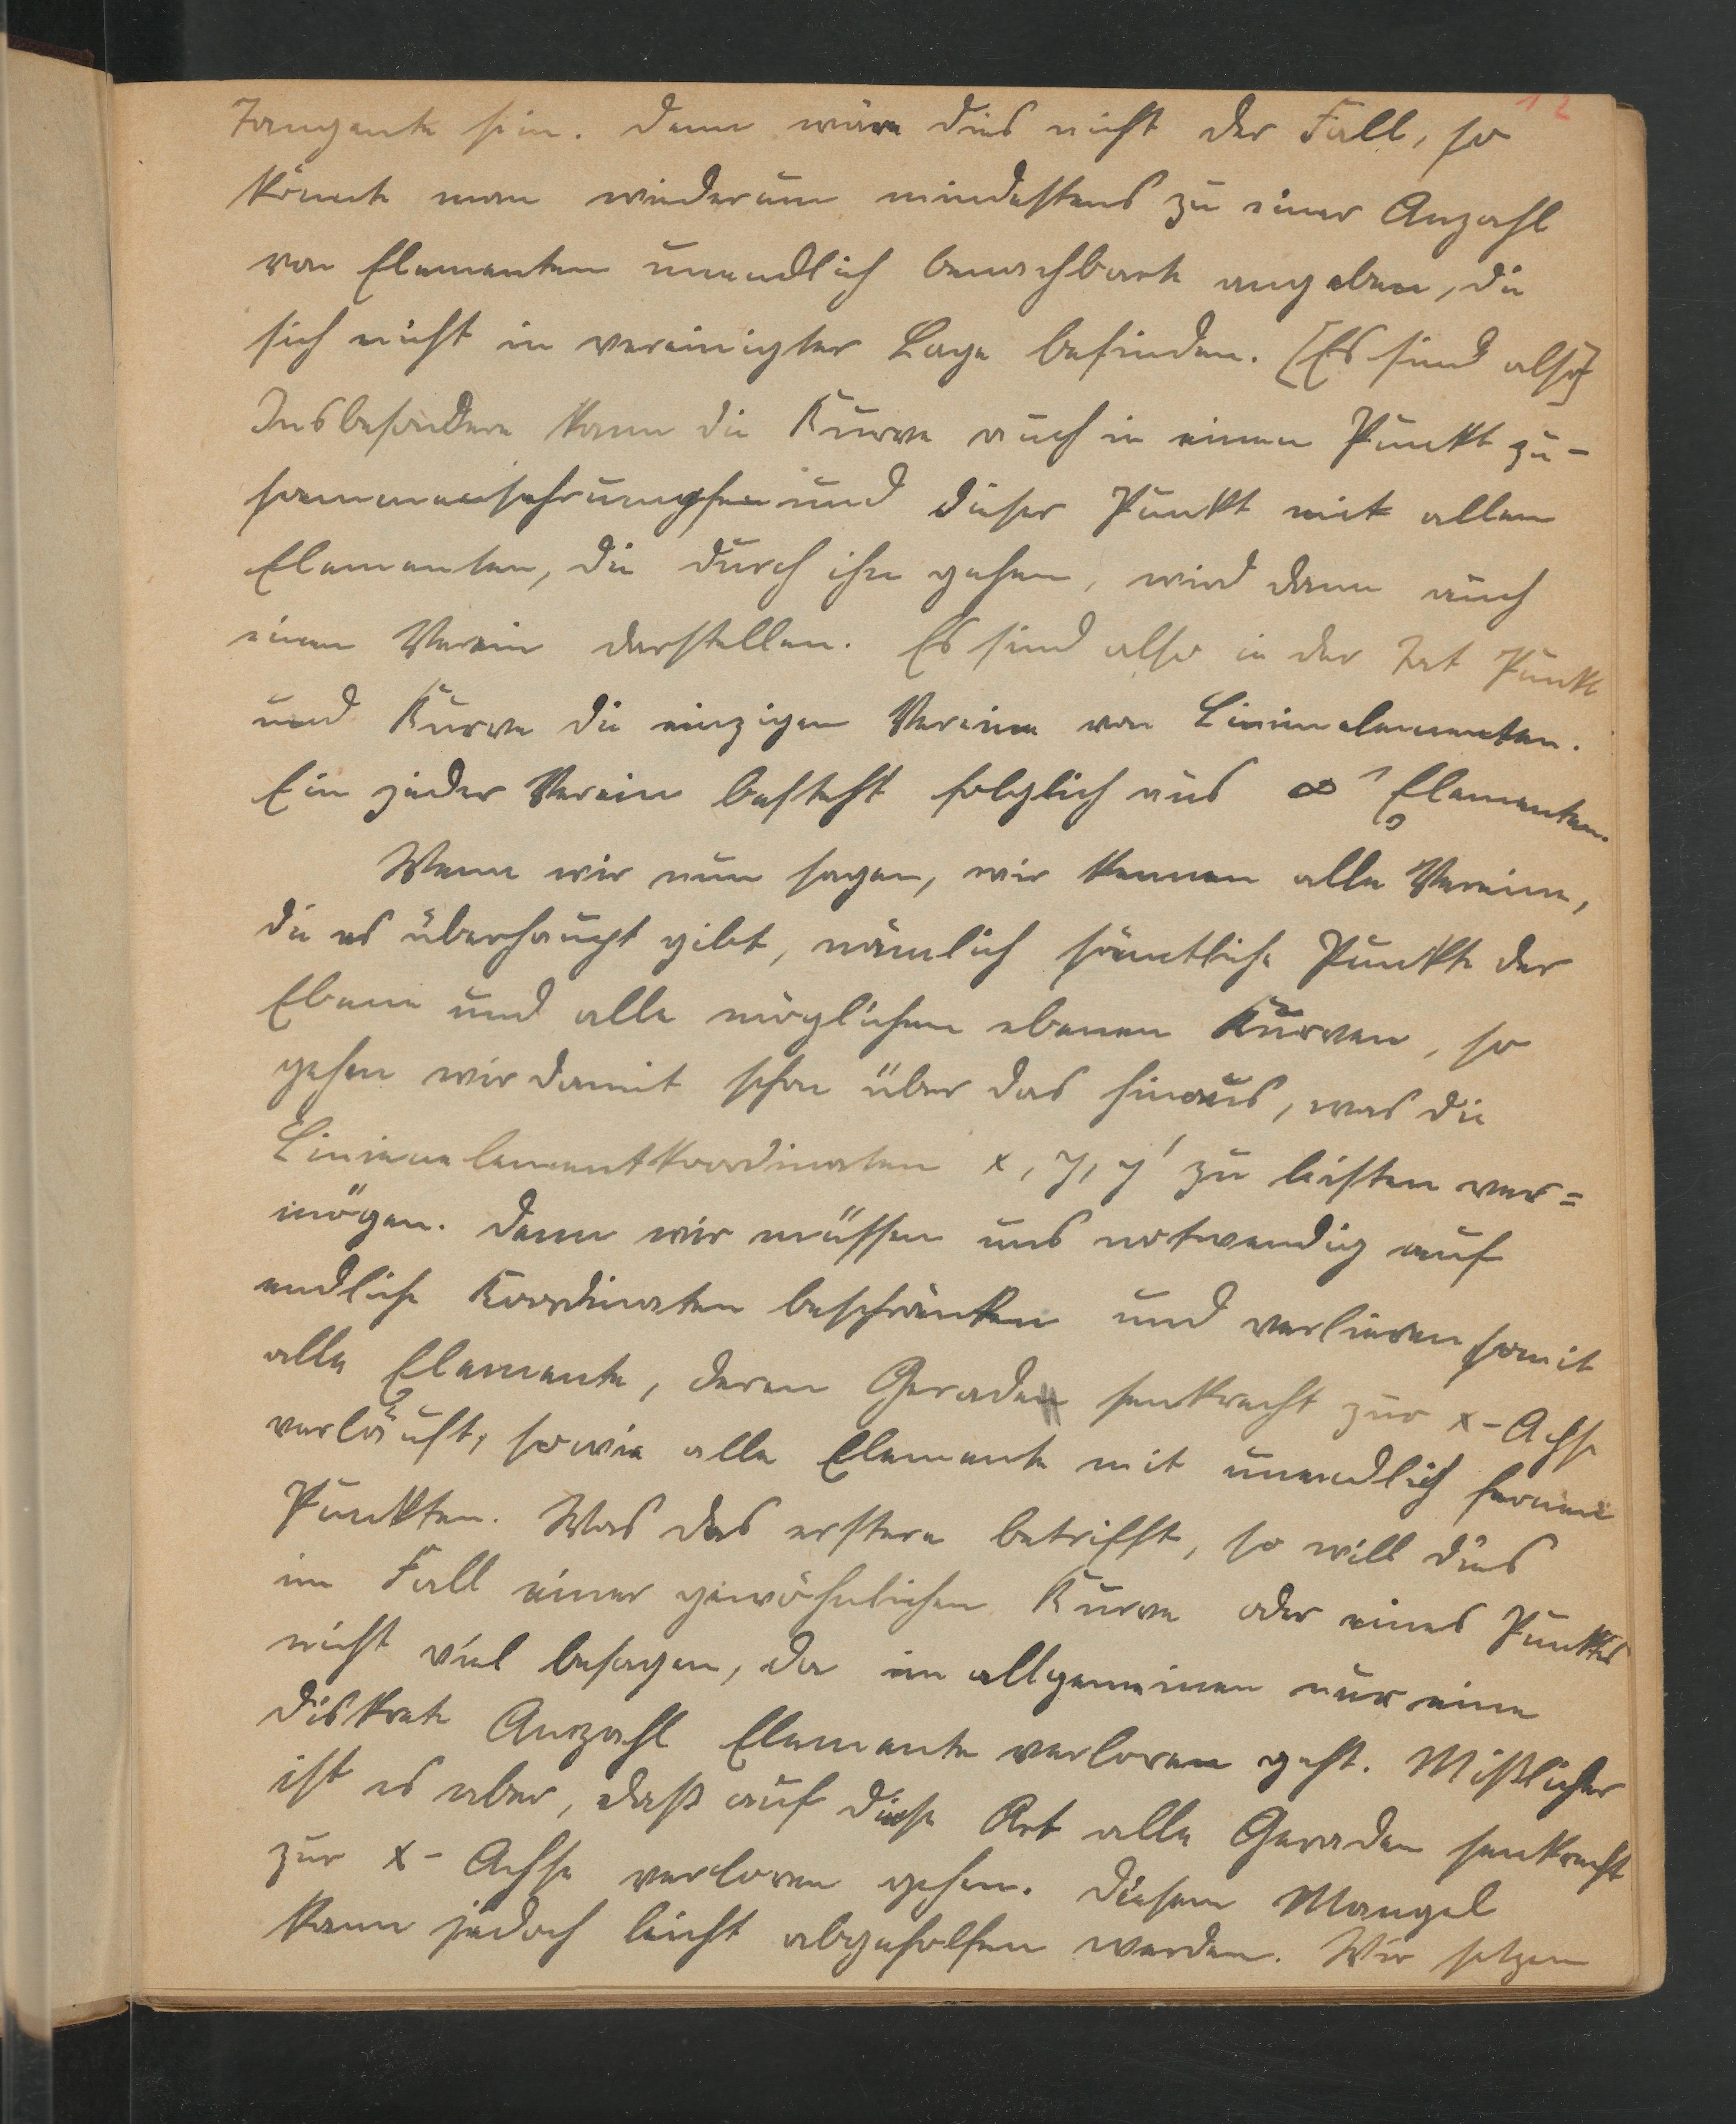 12
Tangente sein. Denn wäre dies nicht der Fall, so
könnte man wiederum mindestens zu einer Anzahl
von Elementen unendlich benachbarte angeben, die
sich nicht in vereinigter Lage befinden. [Es sind also]
Insbesondere kann die Kurve auch in einen Punkt zu-
sammenschrumpfen und dieser Punkt mit allen
Elementen, die durch ihn gehen, wird dann auch
einen Verein darstellen. Es sind also in der Tat Punkt
und Kurve die einzigen Vereine von Linienelementen.
Ein jeder Verein besteht folglich aus ∞¹ Elementen.
Wenn wir nun sagen, wir kennen alle Vereine,
die es überhaupt gibt, nämlich sämtliche Punkte der
Ebene und alle möglichen ebenen Kurven, so
gehen wir damit schon über das hinaus, was die
Linienelementkoordinaten x, y, y' zu leisten ver=
mögen. Denn wir müssen uns notwendig auf
endliche Koordinaten beschränken und verlieren somit
alle Elemente, deren Gerade senkrecht zur x-Achse
verläuft, sowie alle Elemente mit unendlich fernen
Punkten. Was das erstere betrifft, so will dies
im Fall einer gewöhnlichen Kurve oder eines Punktes
nicht viel besagen, da im allgemeinen nur eine
diskrete Anzahl Elemente verloren geht. Mißlicher
ist es aber, daß auf diese Art alle Geraden senkrecht
zur x-Achse verloren gehen. Diesem Mangel
kann jedoch leicht abgeholfen werden. Wir setzen